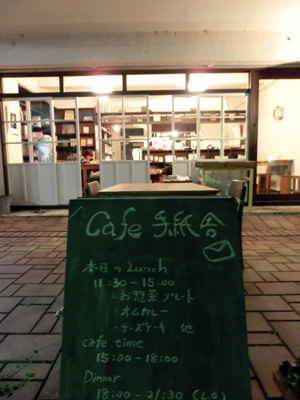 Cafe 手紙舎
本日のLunch
11:30-15:00
・お惣菜プレート
・オムカレー
・チーズケーキ 他
cafe time
15:00-18:00
Dinner
18:00-21:30 (L.O)